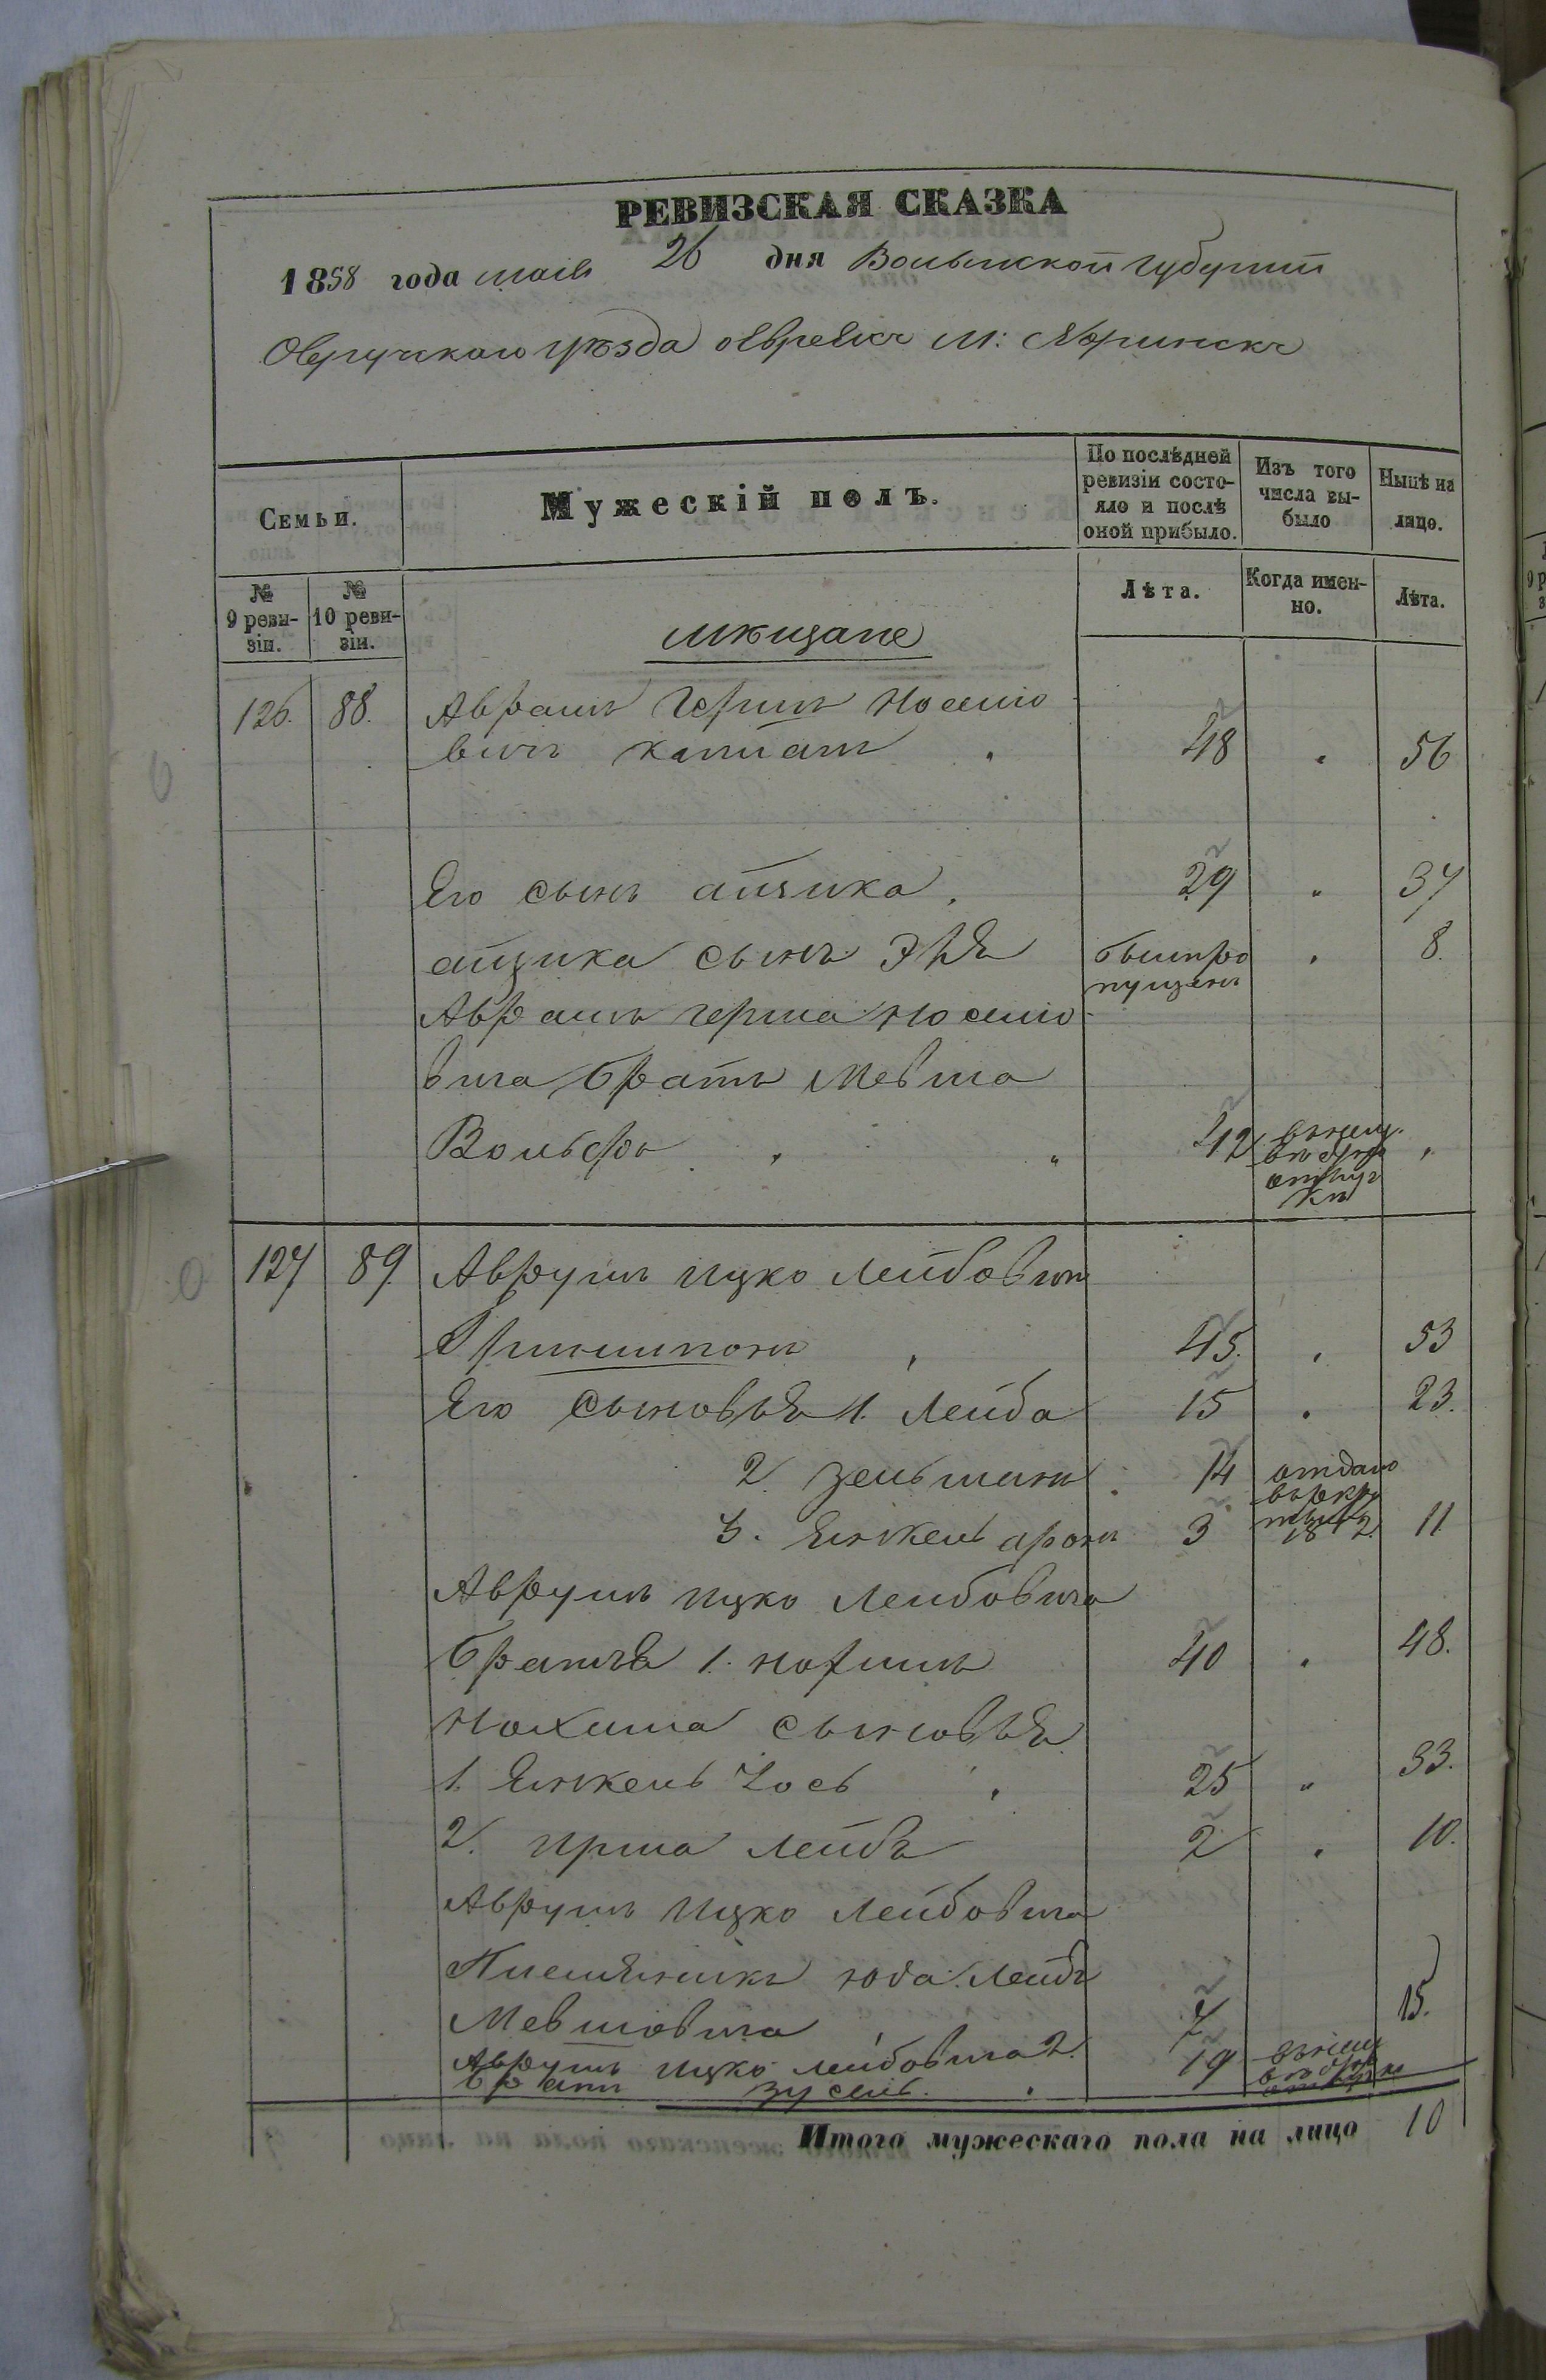 РЕВИЗСКАЯ СКАЗКА
1858 года мая 26 дня Волынской Губернии
Овручскаго уѣзда о Евреяхъ м: Наринскъ
Семьи.
Мужескій полъ.
По послѣдней ревизіи состояло и послѣ оной прибыло.
Изъ того числа выбыло
Нынѣ на лицо.
№ 9 ревизіи.
№ 10 ревизіи.
Лѣта.
Когда именно.
Лѣта.
мѣщане
126. 88. Аврамъ Гершъ Носино
вичъ 48 " 56
Его сынъ Айзика. 29 " 37
айзика сынъ былъ про " 8.
пущенъ
Аврамъ Герша Носимо
вича братъ Мевша
Вольфъ " " 42 "
127 89 Аврумъ Ицко Лейбовичъ
45. " 53
Его сыновья 1. Лейба 15 " 23.
2. Зельманъ 14 отданъ
в рекру
3. Янкель аронъ 3 11
Аврумъ Ицко Лейбовича
братья 1. Нохимъ 40 " 48.
Нохима сыновья
1. Янкель Іось " 25 " 33.
2. Ирша Лейбъ 2 " 10.
Аврумъ Ицко Лейбовича
Племянникъ Юда Лейбъ
Мевшовича 7 15.
Аврумъ Ицко Лейбовича 2. 19
братъ Зусель.
Итого мужескаго пола на лицо 10